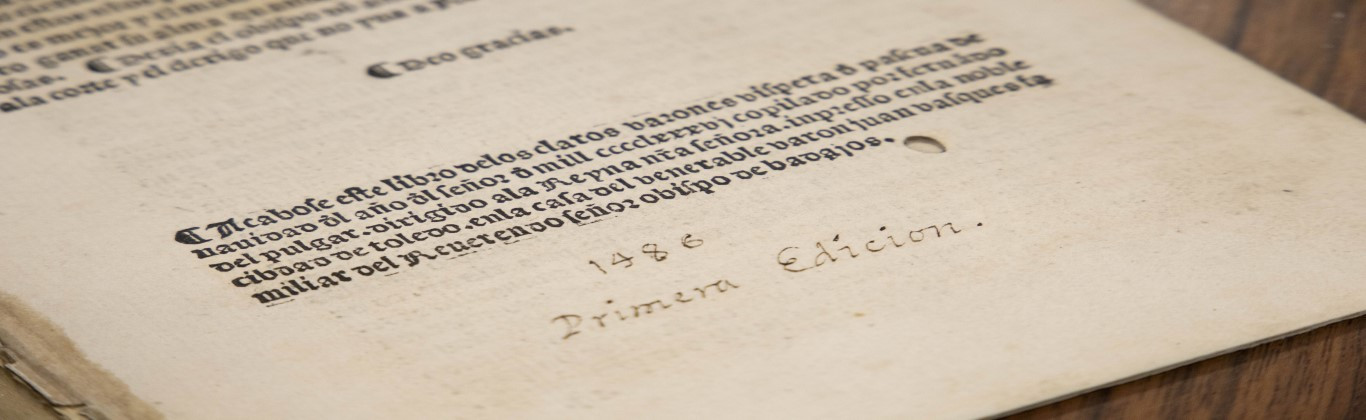 ala corte y el clerigo que no yua a
Deo gracias.
Acabose este libro delos claros varones vispera đ pascua de
nauidad đl año đl señor đ mill cccclxxxvj copilado por fernãdo
del pulgar. dirigido ala Reyna nr̃a señora. impresso enla noble
cibdad de toledo. enla casa del venerable varon juan vasques fa
miliar del Reuerendo señor obispo de badajos.
1486
Primera Edicion.